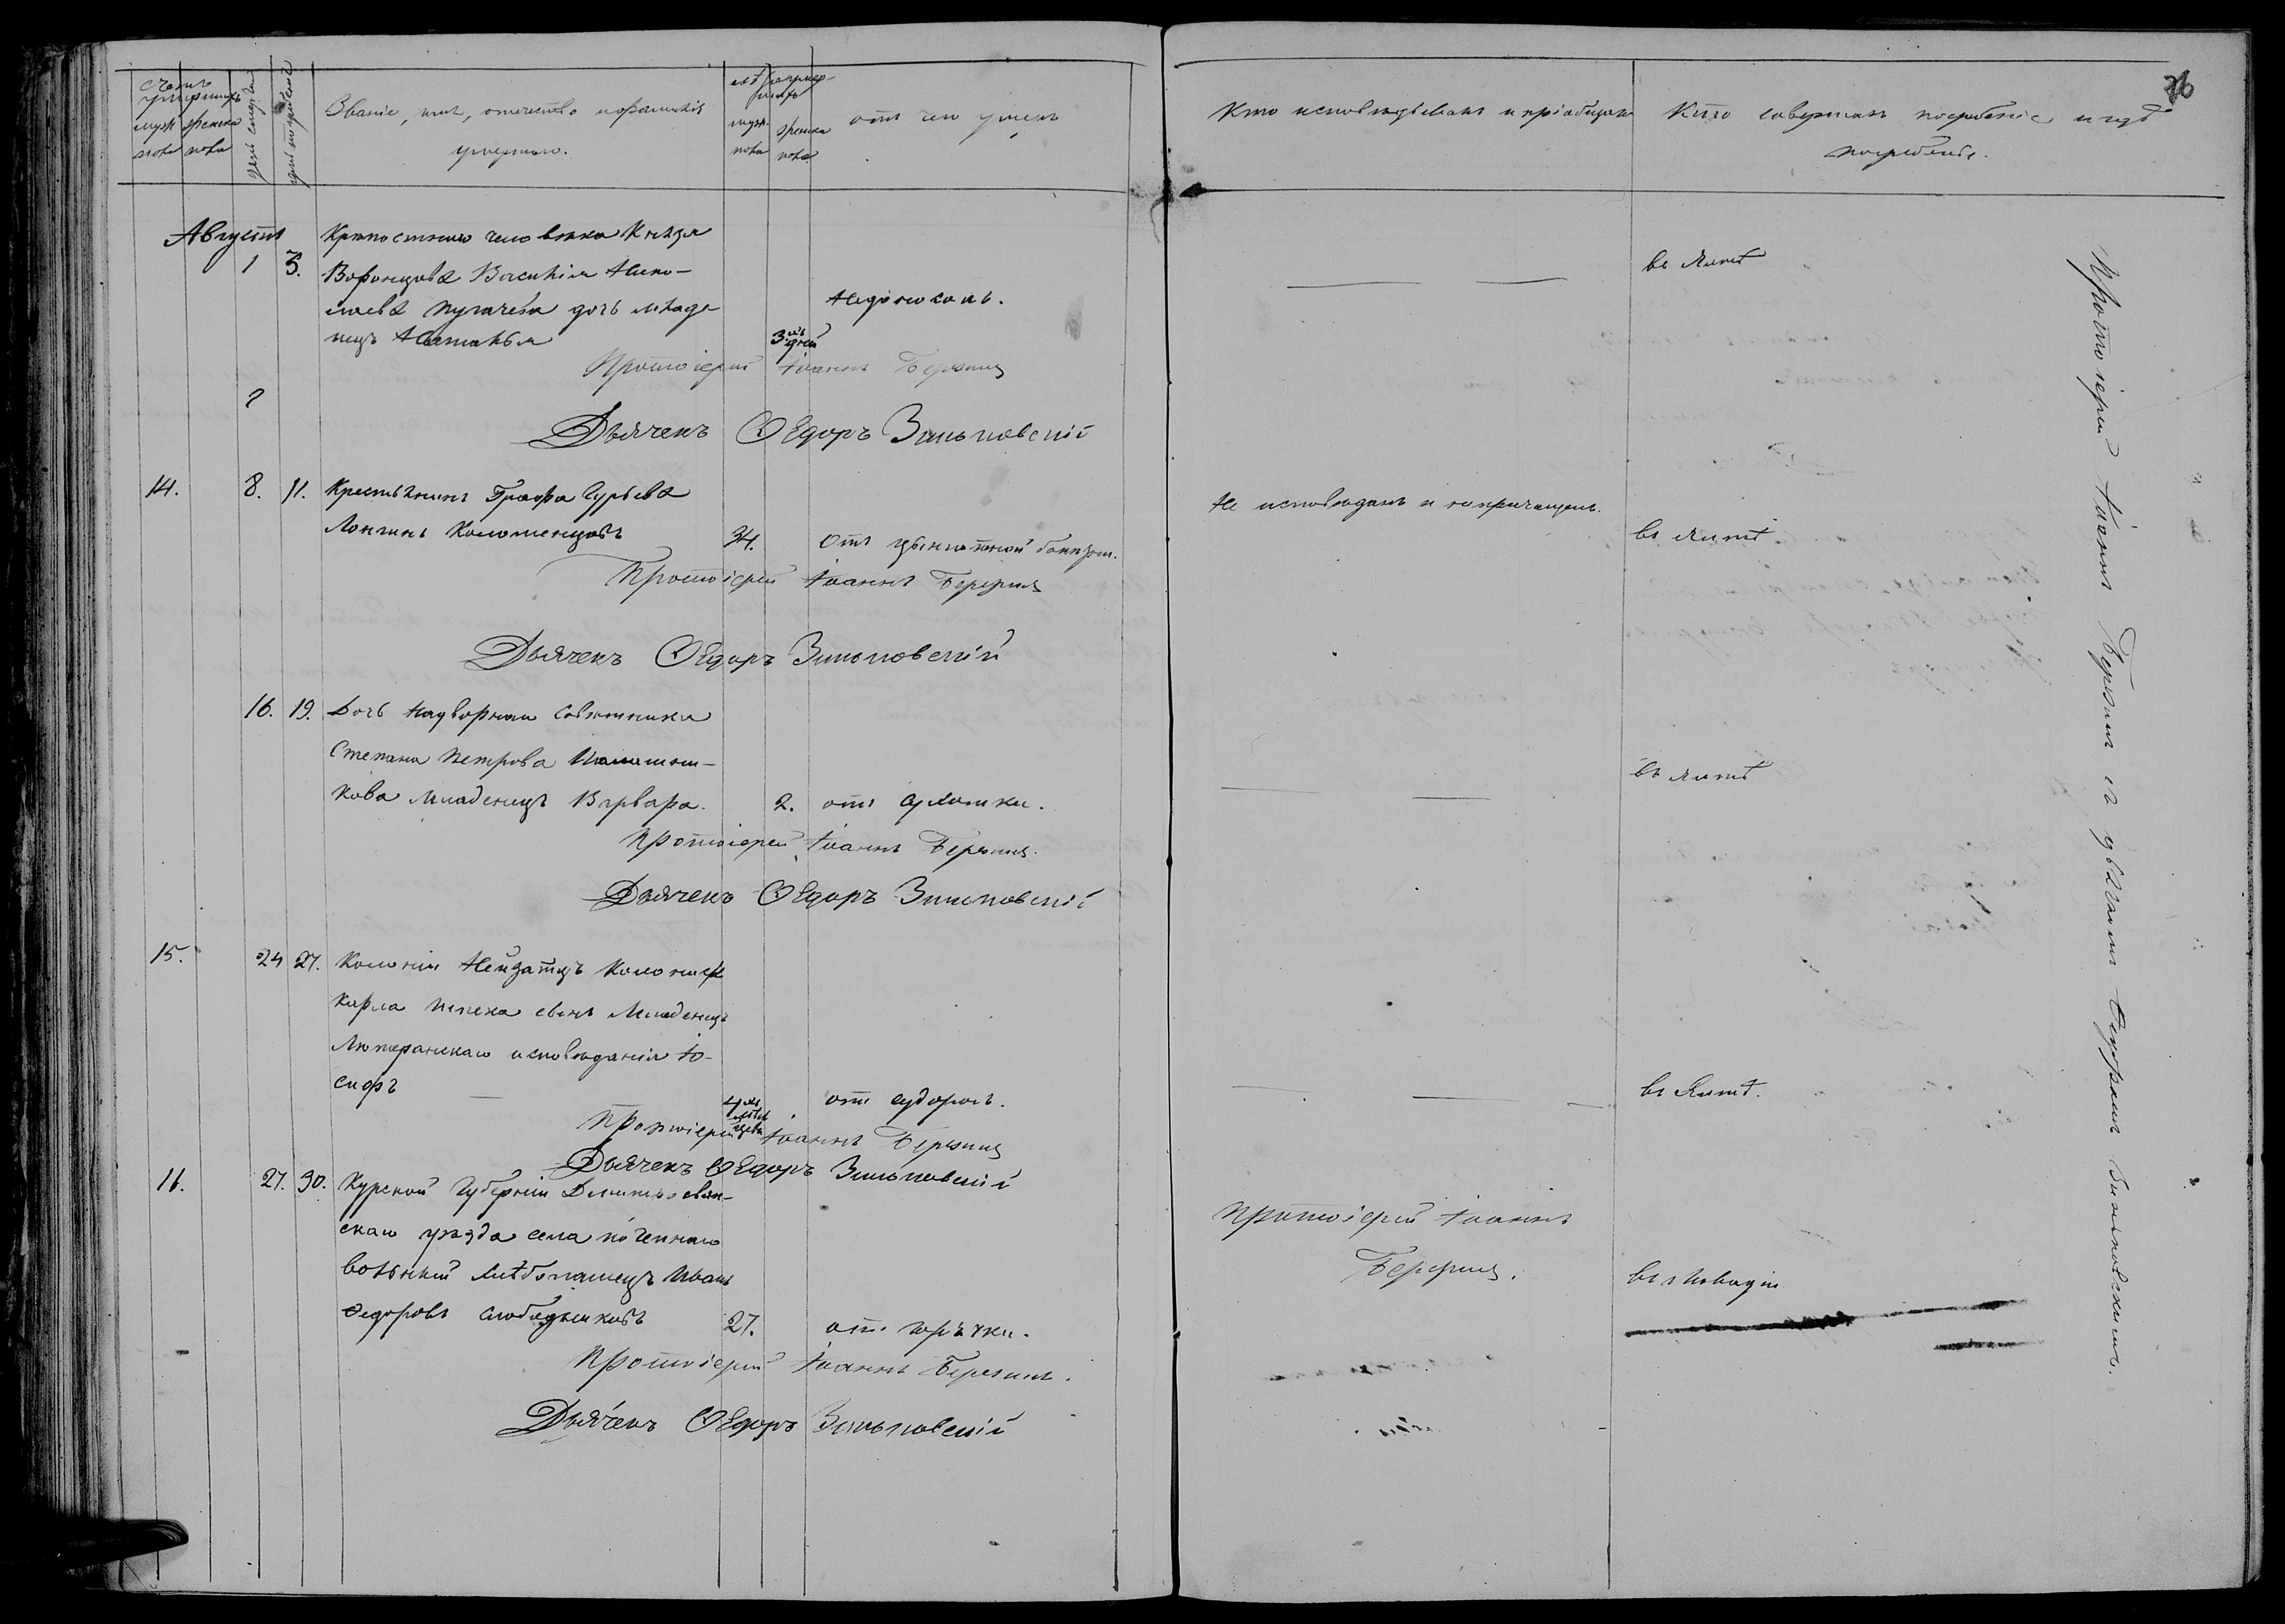 76
Счетъ умершихъ
мужеска пола
женска пола
день смерти
день погребенія
Званіе, имя, отечество и фамилія
умершаго.
лѣта умер-
шихъ
муж. пола
женска пола
отъ чего умеръ
Кто исповѣдывалъ и пріобщалъ
Кто совершалъ погребеніе и гдѣ
погребены.
Августъ
1 3. Крѣпостнаго человѣка Князя
Воронцова Василія Нико-
лаева Пугачева дочь младе
нецъ Наталья
3 дней
недоносокъ.
въ Ялтѣ
Протоіерей Іоаннъ Березинъ
2
Дьячекъ Ѳедоръ Зиньковскій
14. 8. 11. Крестьянинъ Графа Гурьева
Лонгинъ Коломенцовъ 34. отъ цынготной болезни.
Не исповѣданъ и непричащенъ.
въ Ялтѣ.
Протоіерей Іоаннъ Березинъ
Дьячекъ Ѳедоръ Зиньковскій
16. 19. Дочь Надворнаго Совѣтника
Степана Петрова
кова младенецъ Варвара. 2. отъ сухотки.
въ Ялтѣ
Протоіерей Іоаннъ Березинъ.
Дьячекъ Ѳедоръ Зиньковскій
15. 24 27. Колоніи Нейзатцъ Колониста
Карла сынъ Младенецъ
Лютеранскаго исповѣданія Іо-
сифъ
отъ судорогъ.
въ Ялтѣ.
Протоіерей Іоаннъ Березинъ
Дьячекъ Ѳедоръ Зиньковскій
16. 27. 30. Курской Губерніи
скаго уѣзда села
вольный хлѣбопашецъ Иванъ
Федоровъ Слободчиковъ 27. отъ горячки.
Протоіерей Іоаннъ
Березинъ.
въ Ливадіи
Протоіерей Іоаннъ Березинъ.
Дьячекъ Ѳедоръ Зиньковскій
Протоіерей Іоаннъ Березинъ съ дьячкомъ Ѳедоромъ Зиньковскимъ.